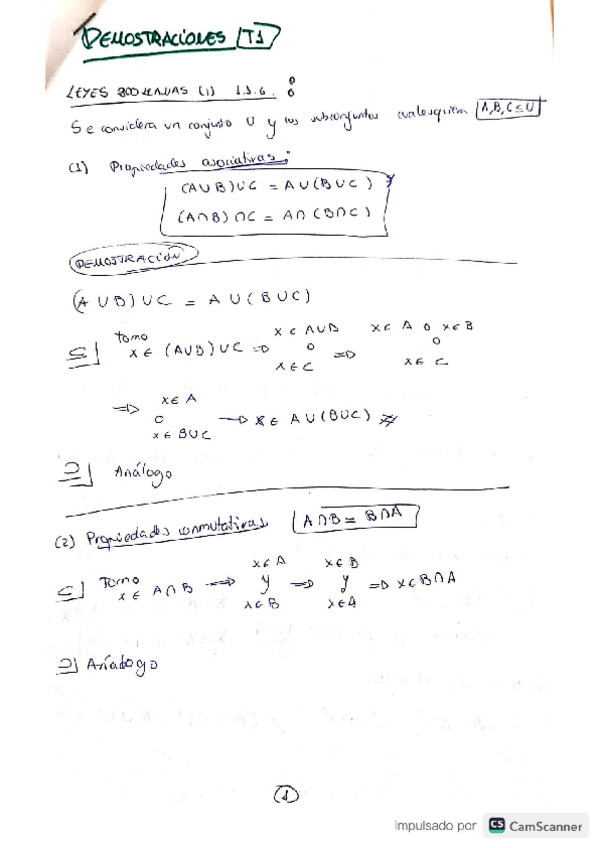 DEMOSTRACIONES (T1)
LEYES BOOLEANAS (1) 1.3.6. :
Se considera un conjunto U y los subconjuntos cualesquiera A,B,C ⊆ U
(1) Propiedades asociativas:
(A∪B)∪C = A∪(B∪C)
(A∩B)∩C = A∩(B∩C)
DEMOSTRACIÓN
(A∪B)∪C = A∪(B∪C)
⊆] Tomo x ∈ (A∪B)∪C ⇒ x ∈ A∪B o x ∈ C ⇒ x ∈ A o x ∈ B o x ∈ C
⇒ x ∈ A o x ∈ B∪C → x ∈ A∪(B∪C) //
⊇] Análogo
(2) Propiedades conmutativas A∩B = B∩A
⊆] Tomo x ∈ A∩B ⇒ x ∈ A y x ∈ B ⇒ x ∈ B y x ∈ A ⇒ x ∈ B∩A
⊇] Análogo
1
impulsado por CS CamScanner